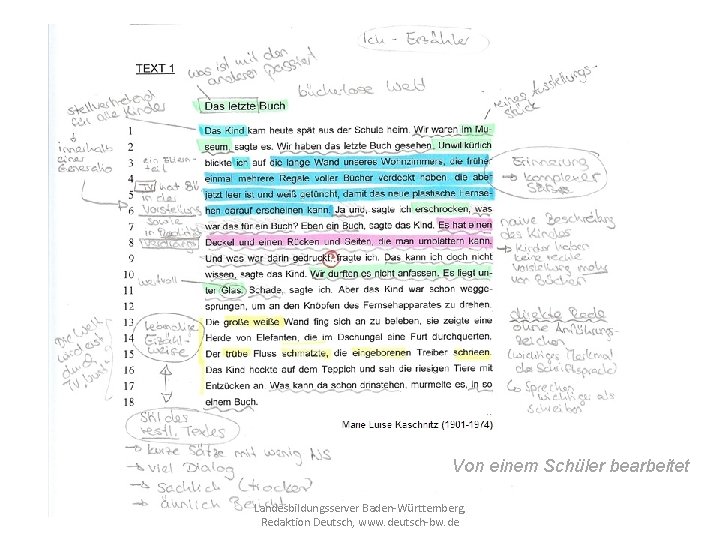 Ich - Erzähler
TEXT 1
was ist mit den
anderen passiert
bücherlose Welt
reines Ausstellungs-
stück
stellvertretend
für alle Kinder
innerhalb
einer
Generatio
Das letzte Buch
1 Das Kind kam heute spät aus der Schule heim. Wir waren im Mu-
2 seum, sagte es. Wir haben das letzte Buch gesehen. Unwillkürlich
3 blickte ich auf die lange Wand unseres Wohnzimmers, die frühe
4 einmal mehrere Regale voller Bücher verdeckt haben, die aber
5 jetzt leer ist und weiß getüncht, damit das neue plastische Fernse-
6 hen darauf erscheinen kann. Ja und, sagte ich erschrocken, was
7 war das für ein Buch? Eben ein Buch, sagte das Kind. Es hat einen
8 Deckel und einen Rücken und Seiten, die man umblättern kann.
9 Und was war darin gedruckt, fragte ich. Das kann ich doch nicht
10 wissen, sagte das Kind. Wir durften es nicht anfassen. Es liegt un-
11 ter Glas. Schade, sagte ich. Aber das Kind war schon wegge-
12 sprungen, um an den Knöpfen des Fernsehapparates zu drehen.
13 Die große weiße Wand fing sich an zu beleben, sie zeigte eine
14 Herde von Elefanten, die im Dschungel eine Furt durchquerten.
15 Der trübe Fluss schmatzte, die eingeborenen Treiber schrieen.
16 Das Kind hockte auf dem Teppich und sah die riesigen Tiere mit
17 Entzücken an. Was kann da schon drinstehen, murmelte es, in so
18 einem Buch.
Marie Luise Kaschnitz (1901-1974)
TV hat
in der
Vorstellung
wertvoll
Erinnerung
→ komplexer
naive Beschreibung
des Kindes
Kinder haben
keine rechte
Vorstellung mehr
von Büchern
direkte Rede
ohne Anführungs-
zeichen
(wichtiges Merkmal
der Schriftsprache)
↳ Sprechen
wichtiger als
Schreiben
Die Welt
wird
durch
TV
lebendige
Erzähl-
weise
Stil des
restl. Textes
→ kurze Sätze mit wenig NS
→ viel Dialog
→ Sachlich (trocken)
→ ähnlich Bericht
Von einem Schüler bearbeitet
Landesbildungsserver Baden-Württemberg,
Redaktion Deutsch, www. deutsch-bw. de